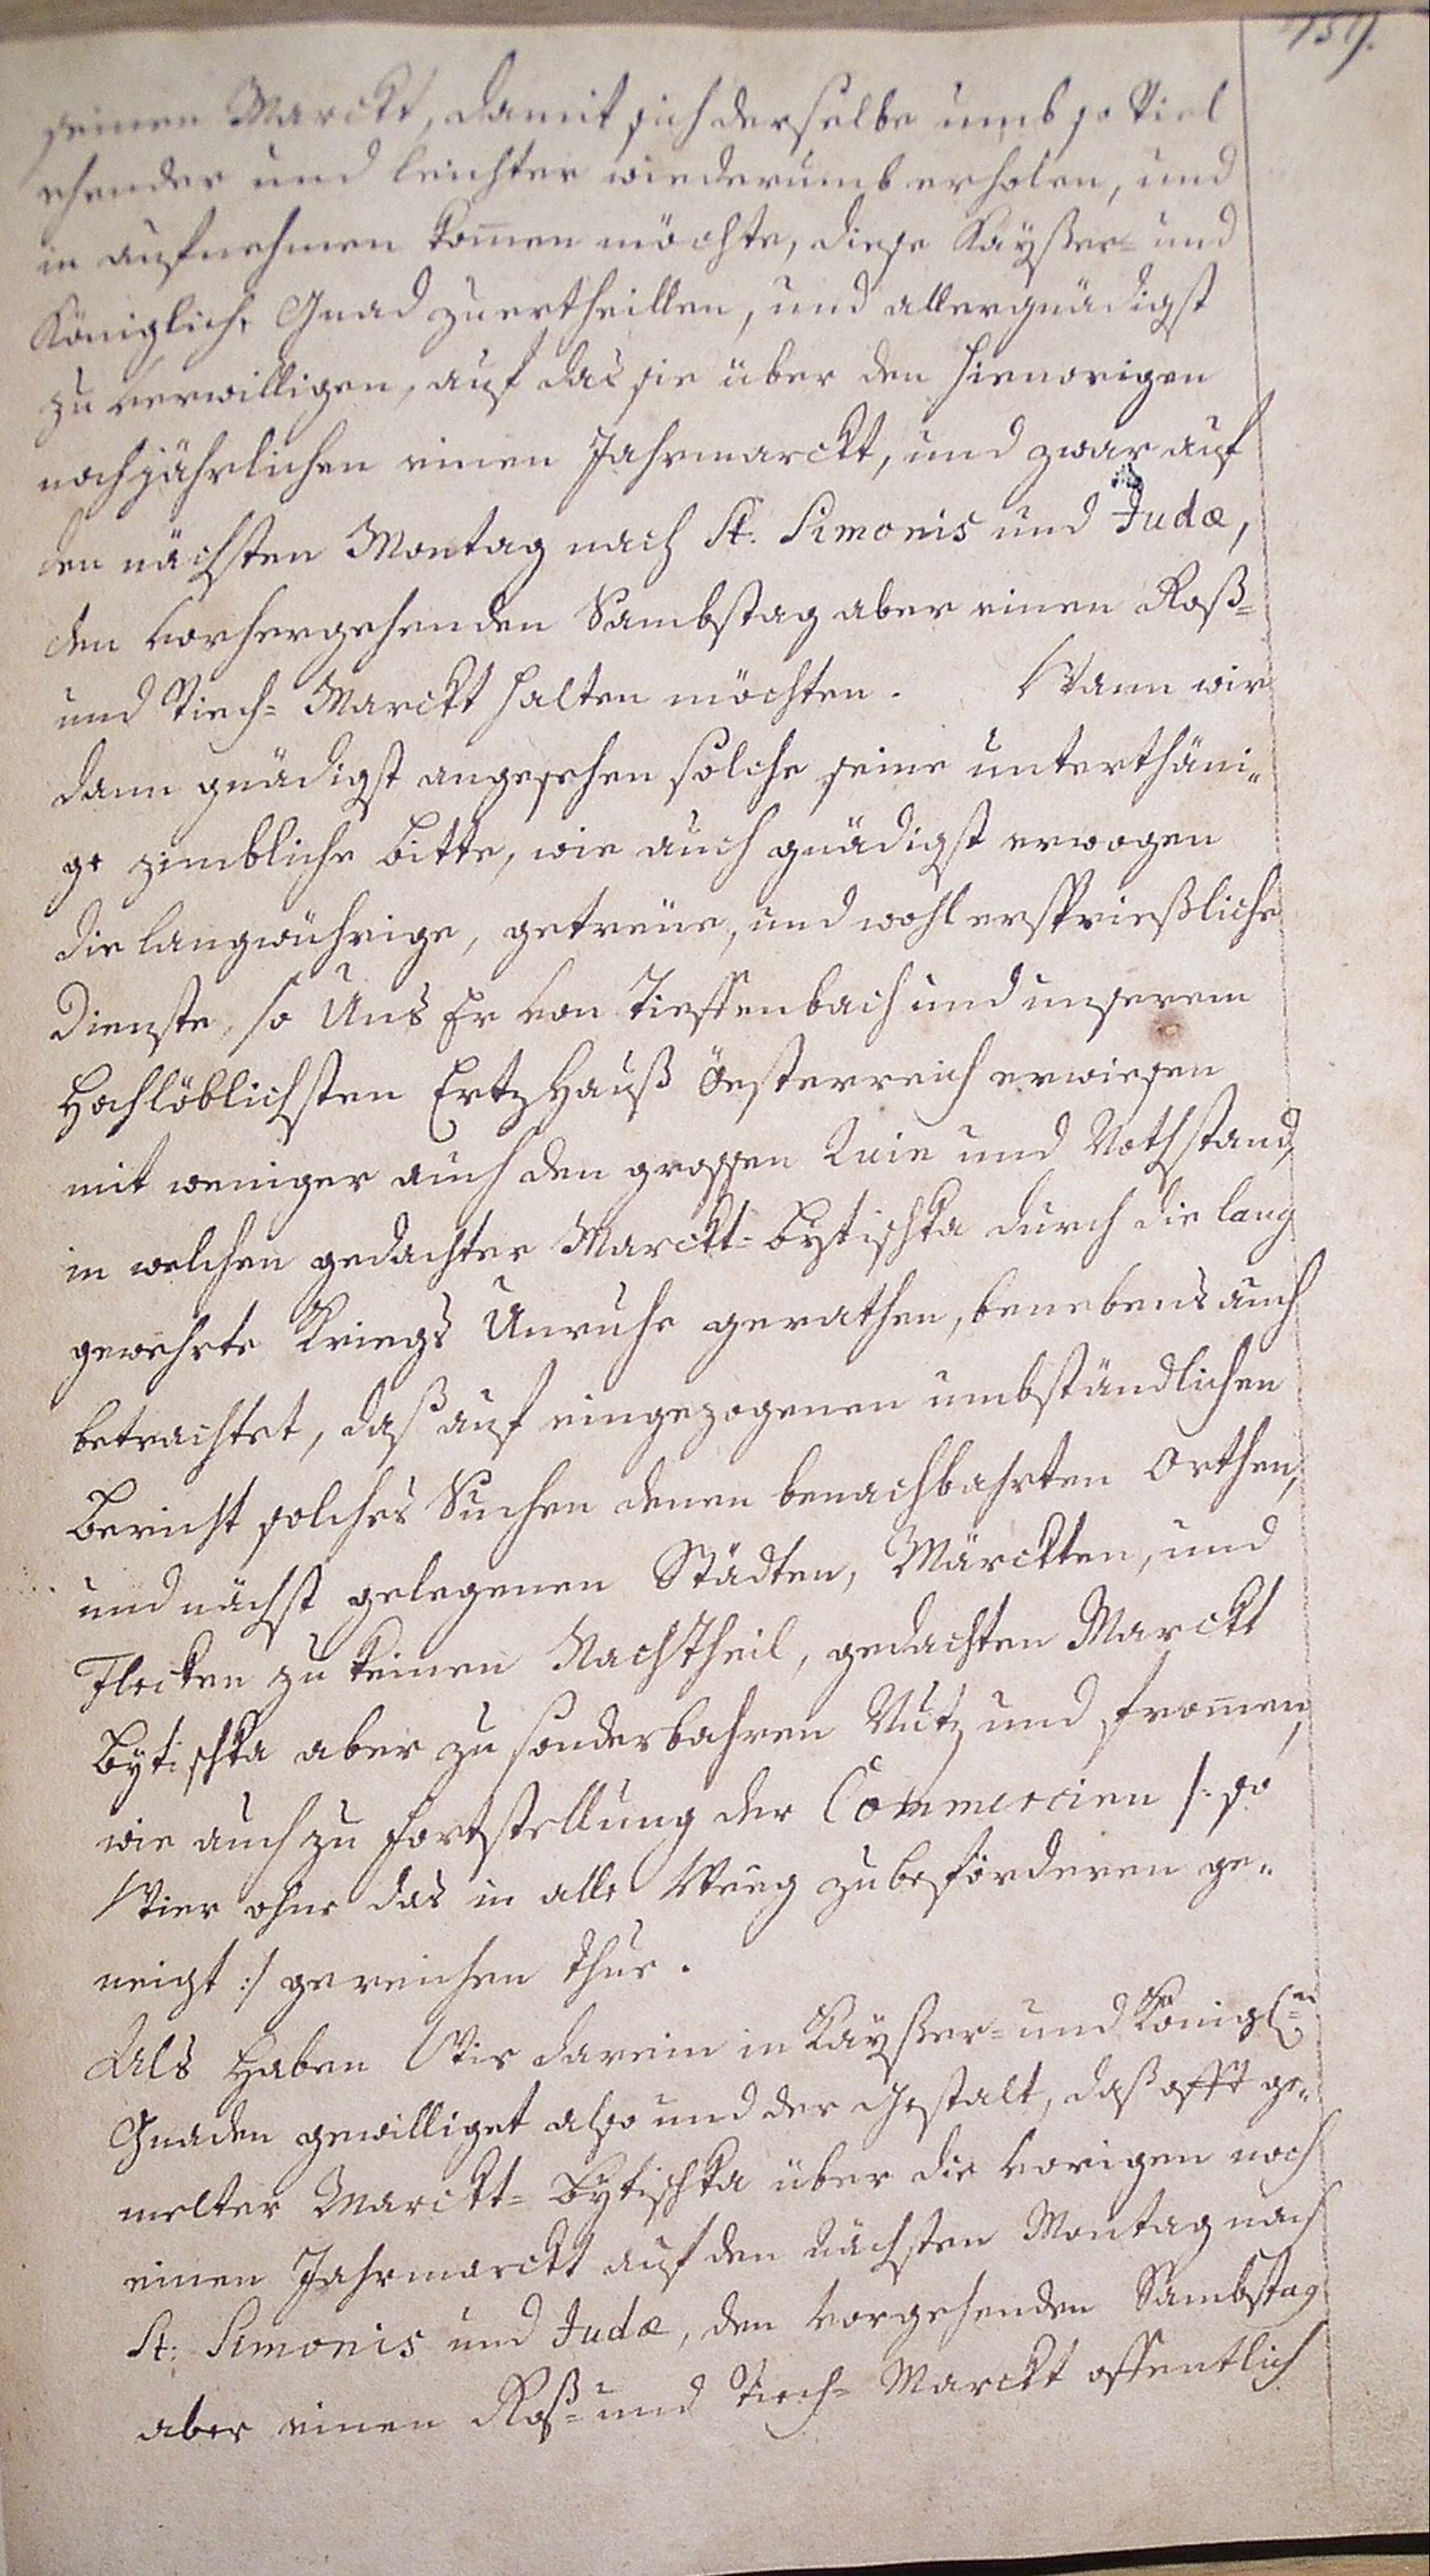 159.
seinen Marckt, damit sich derselbe umb so Viel
ehender und leichter wiederumb erholen, und
in aufnehmen kom̅en möchte, diese Kaÿßer- und
Königlich. Gnad zuertheillen, und allergnädigst
zu verwilligen, auf das sie über den hievorigen
noch jährlichen einen Jahrmarckt, und zwar auf
den nächsten Montag nach St. Simonis und Judæ,
den vorhergehenden Sambstag aber einen Roß-
und Viech-Marckt halten möchten. Wann wir
dann gnädigst angesehen solche seine unterthäni-
ge zimbliche bitte, wie auch gnädigst erwogen
die langwührige, getreüe, und wohl ersprießliche
Dienste, so Uns Er von Tieffenbach und unserem
Hochlöblichsten Ertz Hauß Öesterreich erwiesen
nit weniger auch den grossen Ruin und Nothstand,
in welchen gedachter Marckt-Bytischka durch die lang
gewehrte Kriegs Unruhe gerathen, benebens auch
betrachtet, daß auf eingezogenen umbständlichen
Bericht solches Suchen denen benachbahrten Orthen,
und nächst gelegenen Städten, Märckten, und
Flecken zu keinen Nachtheil, gedachten Marckt
Bÿtischka aber zu sonderbahren Nutz und from̅en,
wie auch zu fortstellung der Commercien /: so
Wier ohne das in alle Weeg zubeförderen ge-
neigt :/ gereichen thue.
Als Haben Wir darein in Kaÿßer- und Königl:n
Gnaden gewilliget also und der Gestalt, daß offt ge-
melter Marckt-Bÿtischka über die vorigen noch
einen Jahrmarckt auf den nächsten Montag nach
St: Simonis und Judæ, den vorgehenden Sambstag
aber einen Roß- und Viech-Marckt offentlich